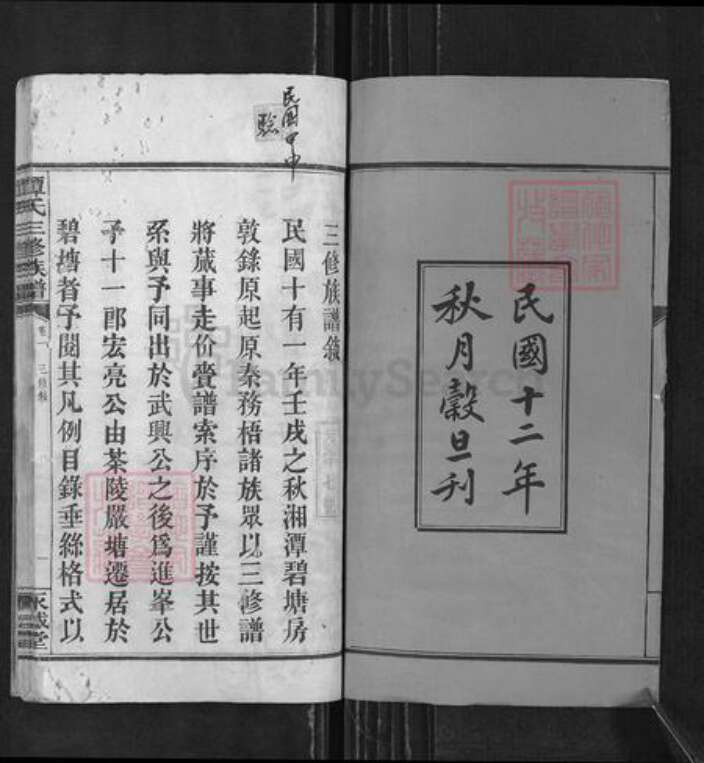 民國十二年
秋月穀旦刊
民國甲申
驗
三修族譜敘
民國十有一年壬戌之秋湘潭碧塘房
敦錄原起原泰務梧諸族眾以三修譜
將蕆事走价賫譜索序於予謹按其世
系與予同出於武興公之後為進峯公
子十一郎宏亮公由茶陵嚴塘遷居於
碧塘者予閱其凡例目錄垂絲格式以
譚氏三修族譜
卷一 三修敘
一
永誠堂
FamilySearch